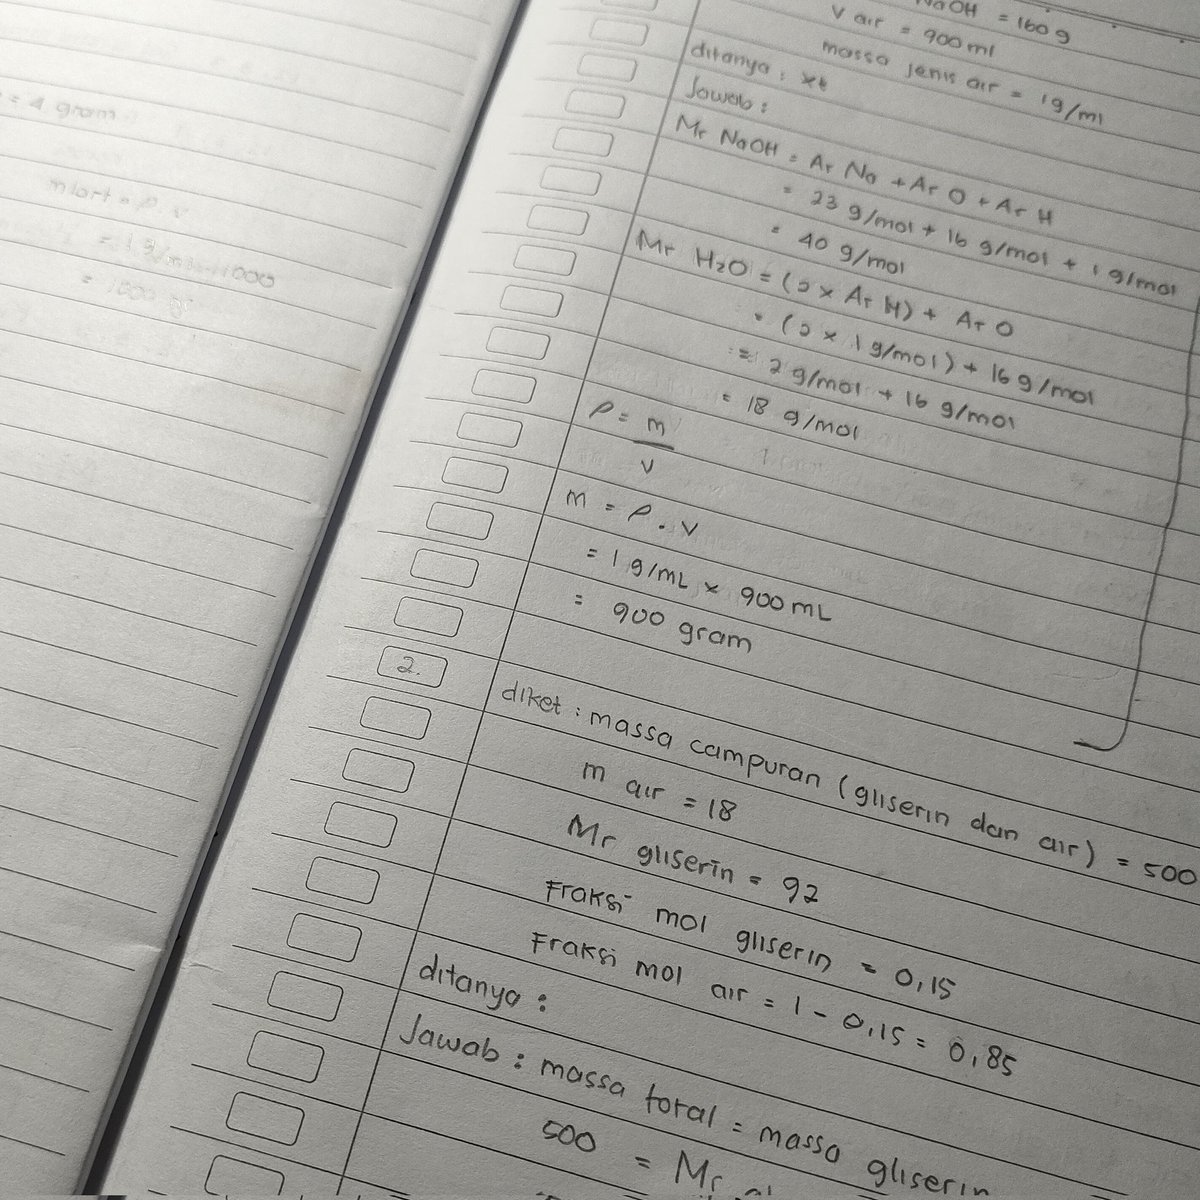 = 4 gram
mlart = ρ . V
= 1 g/ml . 1000
= 1000 gr
NaOH = 160 g
V air = 900 ml
massa jenis air = 1 g/ml
ditanya : xt
Jawab :
Mr NaOH = Ar Na + Ar O + Ar H
= 23 g/mol + 16 g/mol + 1 g/mol
= 40 g/mol
Mr H₂O = (2 x Ar H) + Ar O
= (2 x 1 g/mol) + 16 g/mol
= 2 g/mol + 16 g/mol
= 18 g/mol
ρ = m
V
m = ρ . V
= 1 g/mL x 900 mL
= 900 gram
2.
diket : massa campuran (gliserin dan air) = 500
m air = 18
Mr gliserin = 92
Fraksi mol gliserin = 0,15
Fraksi mol air = 1 - 0,15 = 0,85
ditanya :
Jawab : massa total = massa gliserin
500 = Mr